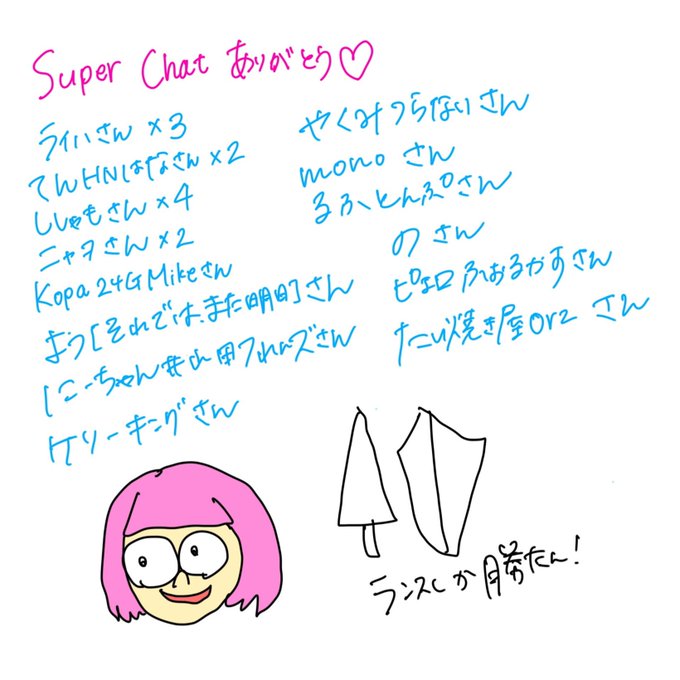 Super Chat ありがとう♡
ライハさん×3
てんHNはなさん×2
ししゃもさん×4
ニャヲさん×2
Kopa24GMikeさん
よつ[それでは、また明日]さん
にーちゃん
さん
ケリーキングさん
やくみつらないさん
monoさん
るふとんぷさん
のさん
ピエロふぉるかすさん
たい焼き屋orzさん
ランスしか勝たん!